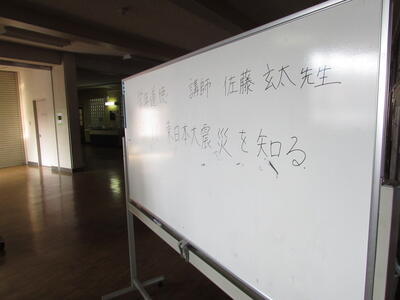 講師 佐藤 玄太 先生
東日本大震災を知る